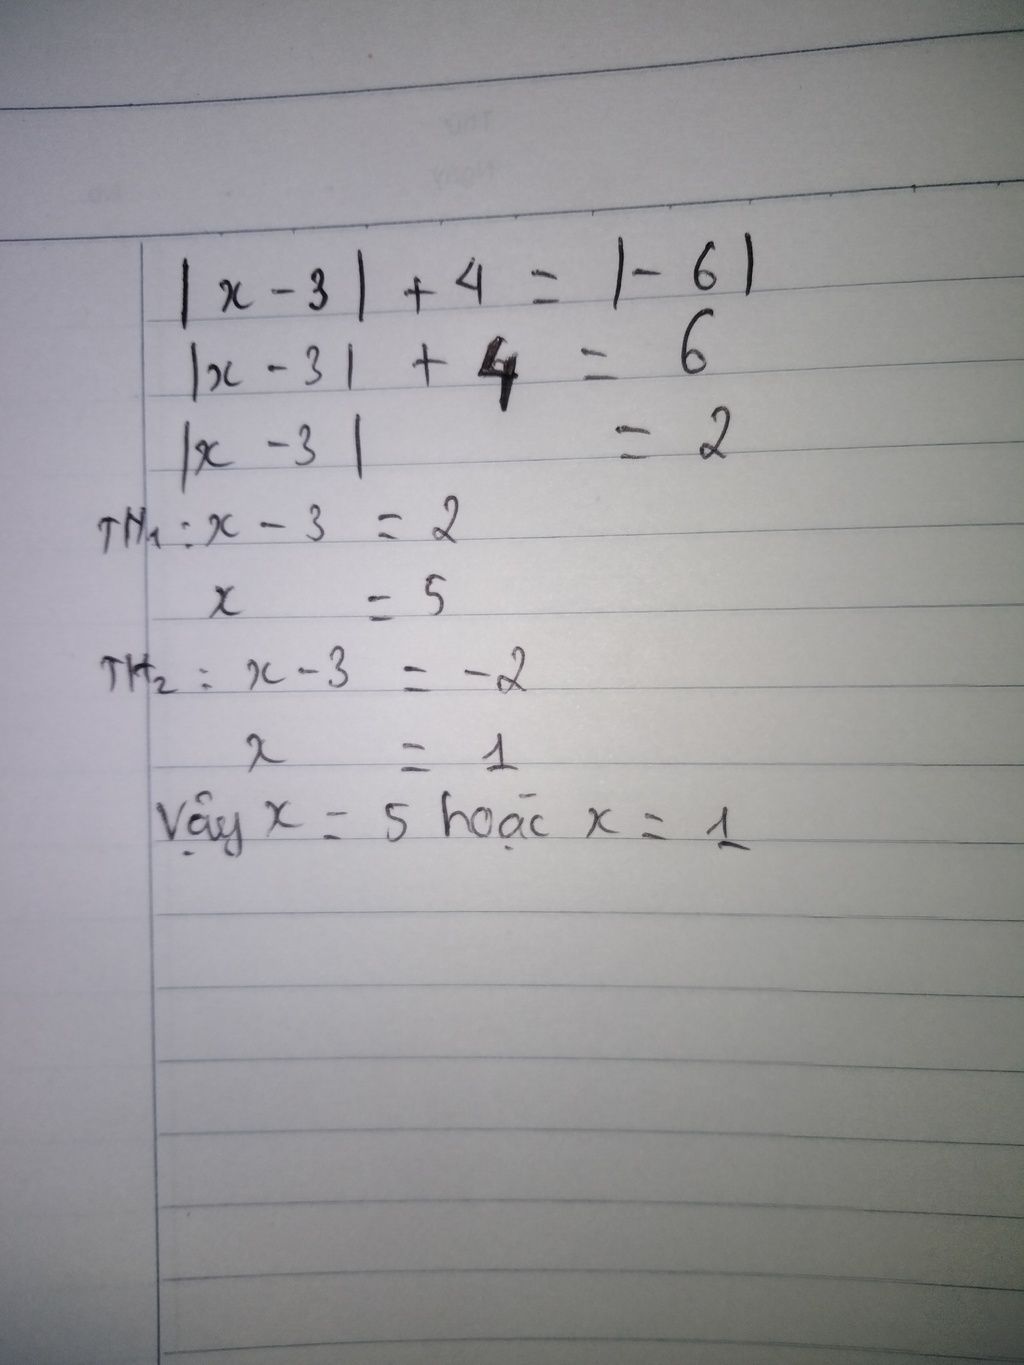 |x - 3| + 4 = |- 6|
|x - 3| + 4 = 6
|x - 3| = 2
TH1 : x - 3 = 2
x = 5
TH2 : x - 3 = -2
x = 1
Vậy x = 5 hoặc x = 1